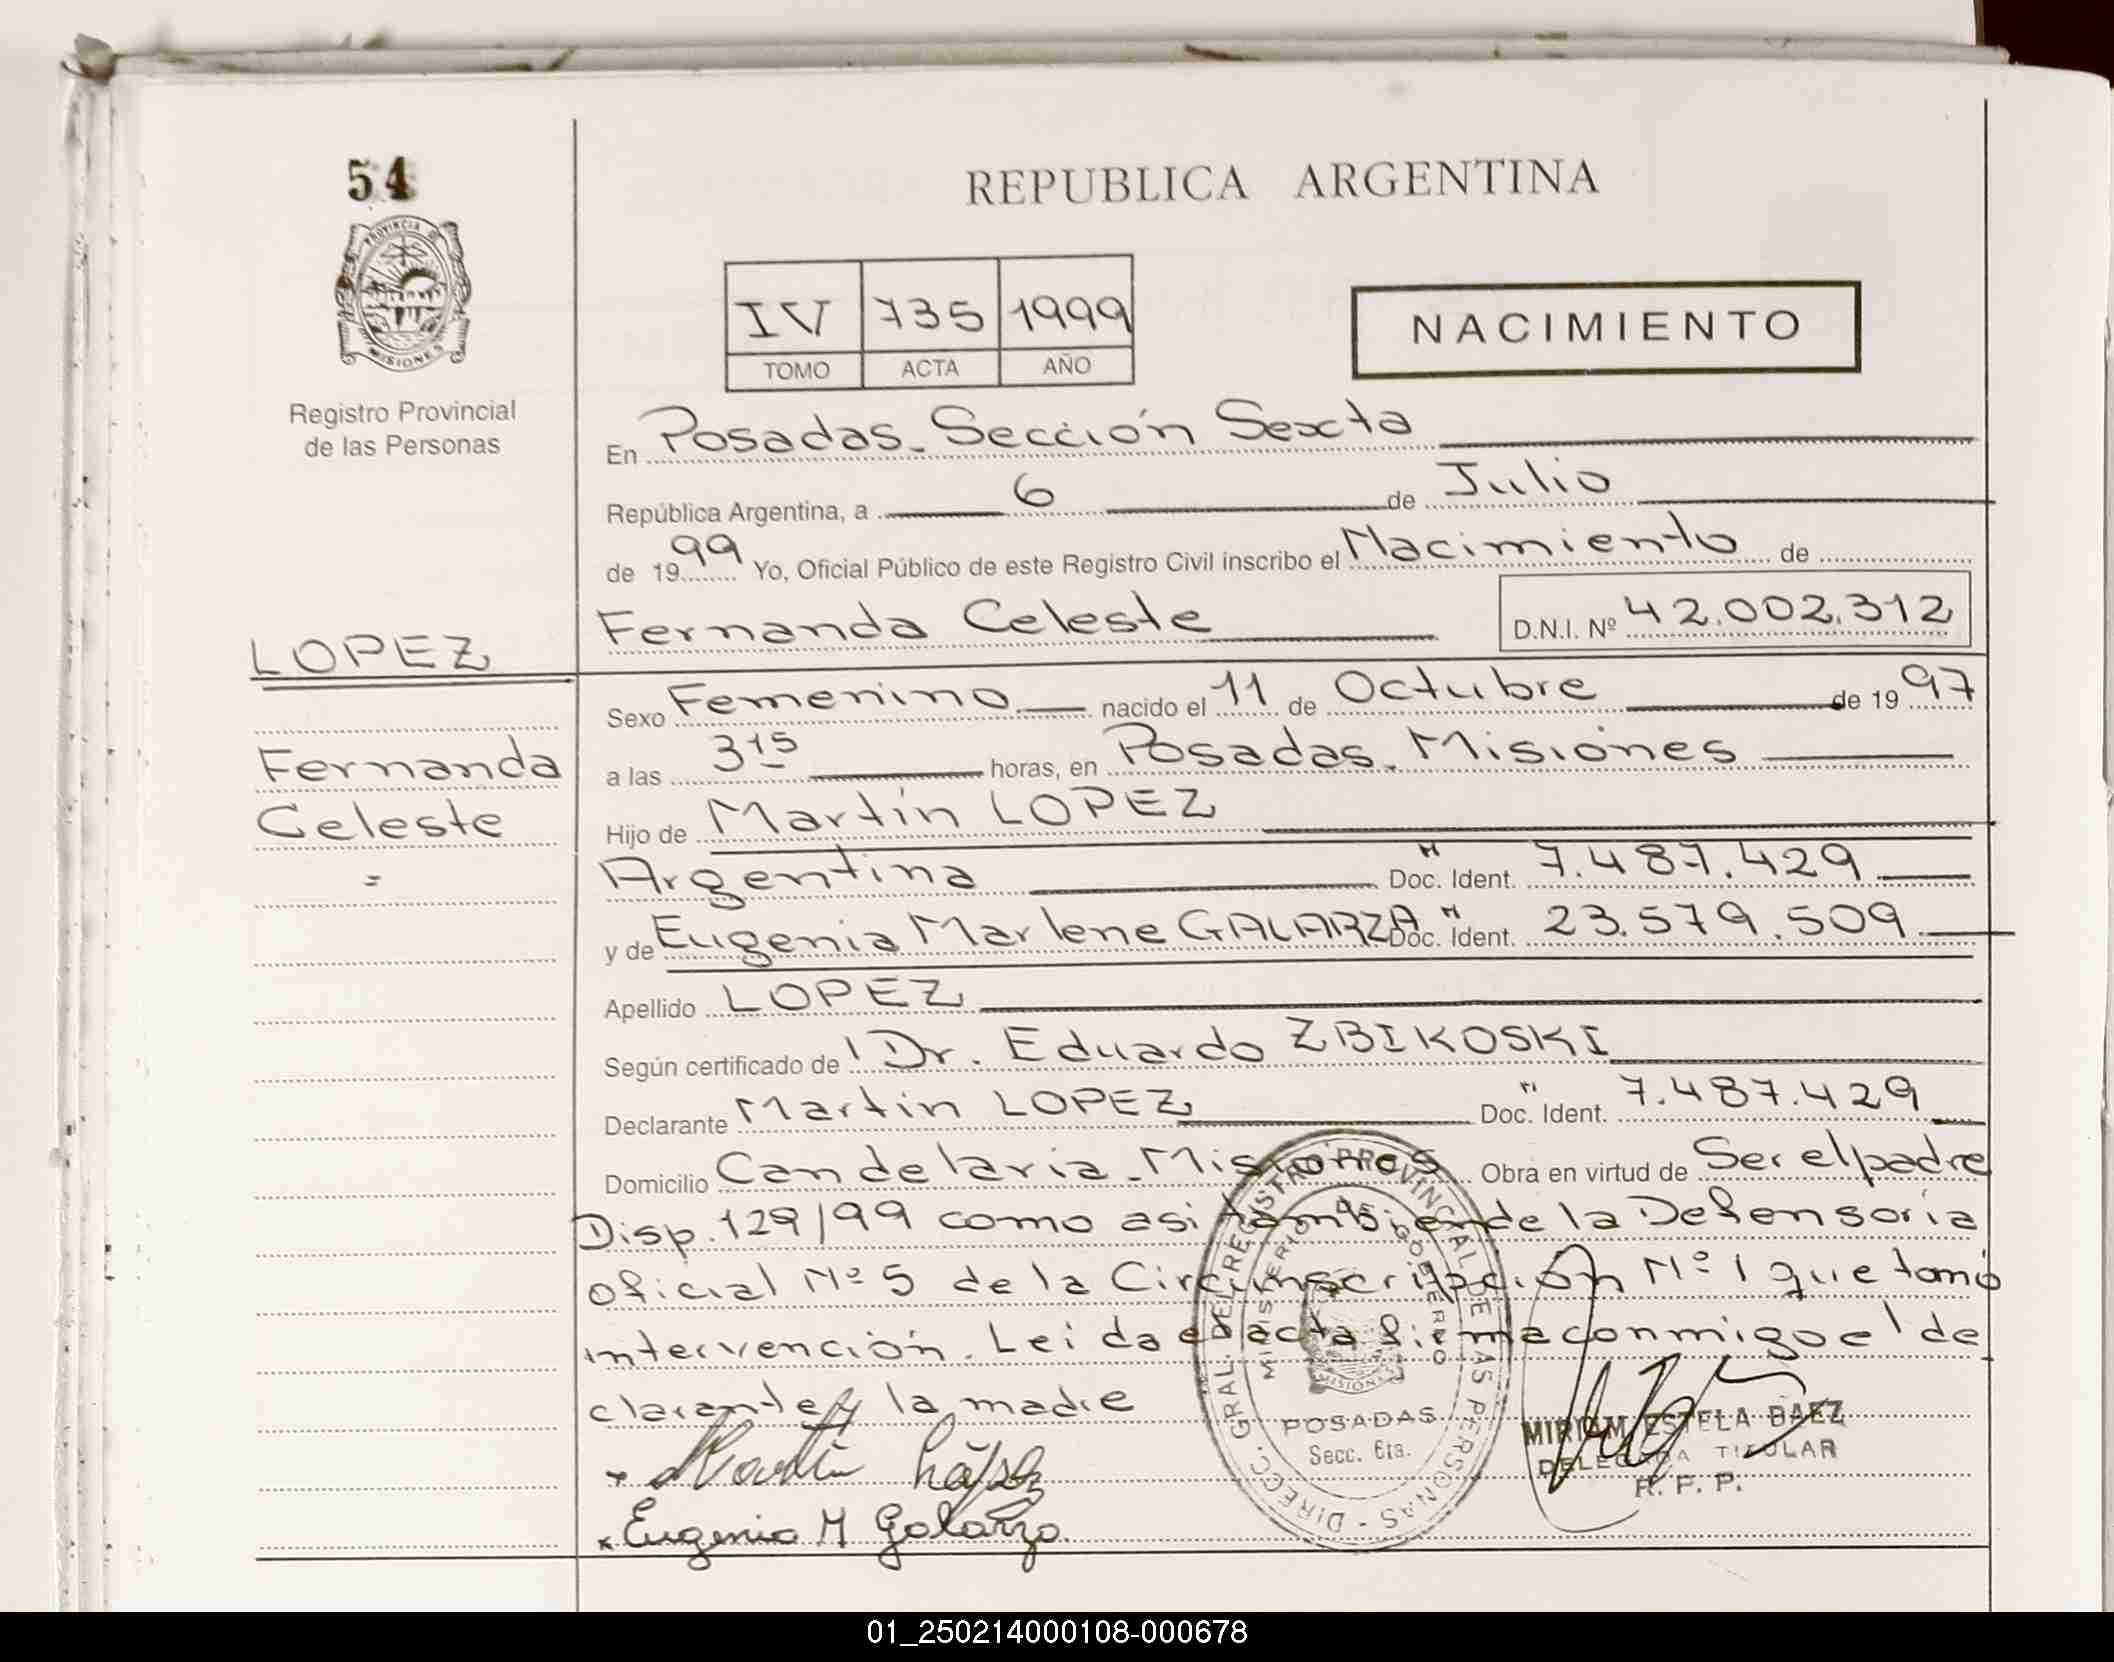 54
PROVINCIA DE
MISIONES
Registro Provincial
de las Personas
LOPEZ
Fernanda
Celeste
=
REPUBLICA ARGENTINA
IV 735 1999
TOMO ACTA AÑO
NACIMIENTO
En Posadas. Sección Sexta
República Argentina, a 6 de Julio
de 1999 Yo, Oficial Público de este Registro Civil inscribo el Nacimiento de
Fernanda Celeste D.N.I. Nº 42.002.312
Sexo Femenino nacido el 11 de Octubre de 1997
a las 3 15 horas, en Posadas. Misiones
Hijo de Martín LOPEZ
Argentina Doc. Ident. 7.487.429
y de Eugenia Marlene GALARZA Doc. Ident. 23.579.509
Apellido LOPEZ
Según certificado de Dr. Eduardo ZBIKOSKI
Declarante Martín LOPEZ Doc. Ident. 7.487.429
Domicilio Candelaria. Misiones Obra en virtud de Ser el padre
Disp. 129/99 como asi tambien de la Defensoría
oficial Nº 5 de la Circunscripción Nº 1 que tomó
intervención. Leida el acta firma conmigo el de
clarante y la madre
Martín López
Eugenia M Galarza.
DIREC. GRAL. DEL REGISTRO PROVINCIAL DE LAS PERSONAS -
MINISTERIO DE GOBIERNO
MISIONES
POSADAS
Secc. 6ta.
MIRIAM ESTELA BAEZ
DELEGADA TITULAR
R. P. P.
01_250214000108-000678